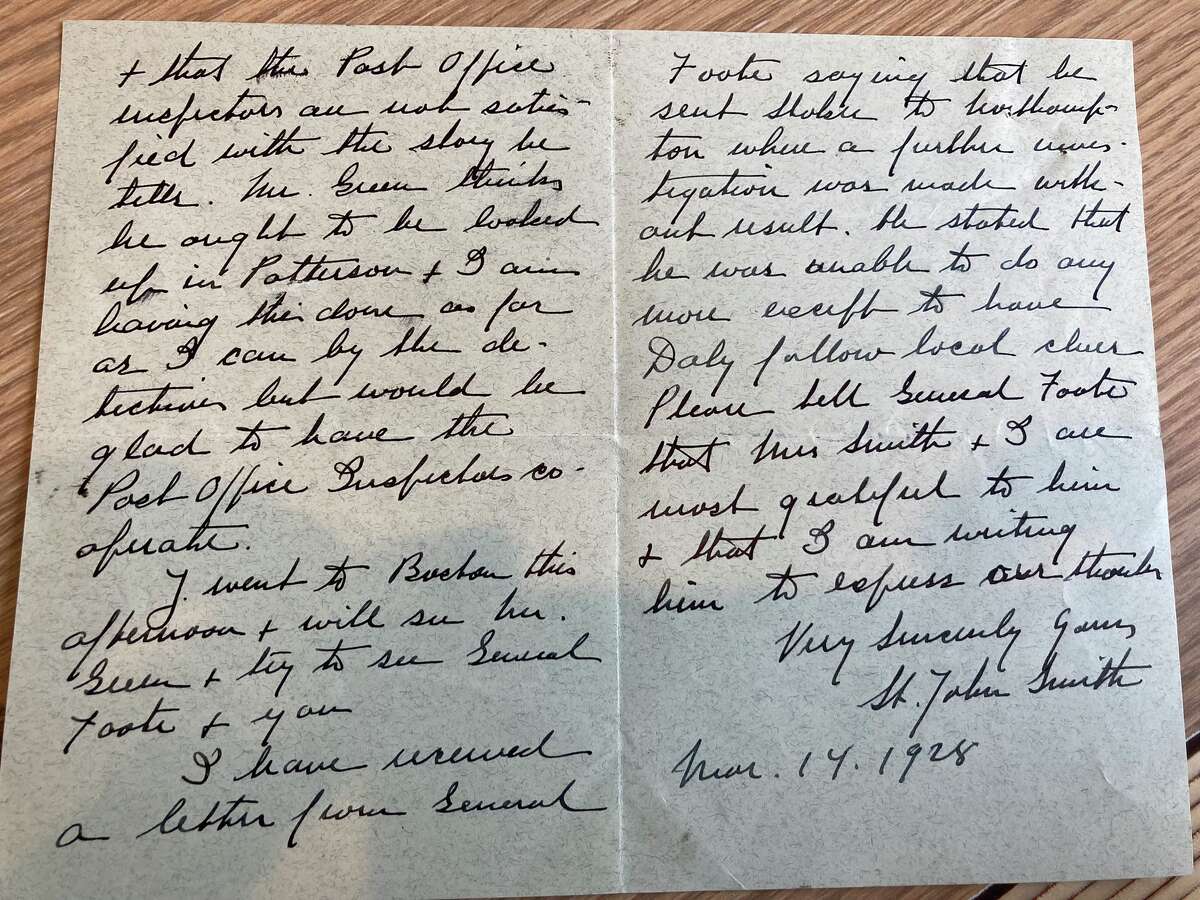 + that the Post Office
inspectors are not satis-
fied with the story he
tells. Mr. Green thinks
he ought to be looked
up in Patterson + I am
having this done as far
as I can by the de-
tectives but would be
glad to have the
Post Office Inspectors co-
operate.
I went to Boston this
afternoon + will see Mr.
Green + try to see General
Foote + you
I have received
a letter from General
Foote saying that he
sent Stokes to Northamp-
ton where a further inves-
tigation was made with-
out result. He stated that
he was unable to do any
more except to have
Daly follow local clues
Please tell General Foote
that Mrs Smith + I are
most grateful to him
+ that I am writing
him to express our thanks
Very Sincerely Yours
St. John Smith
Mar. 14. 1928